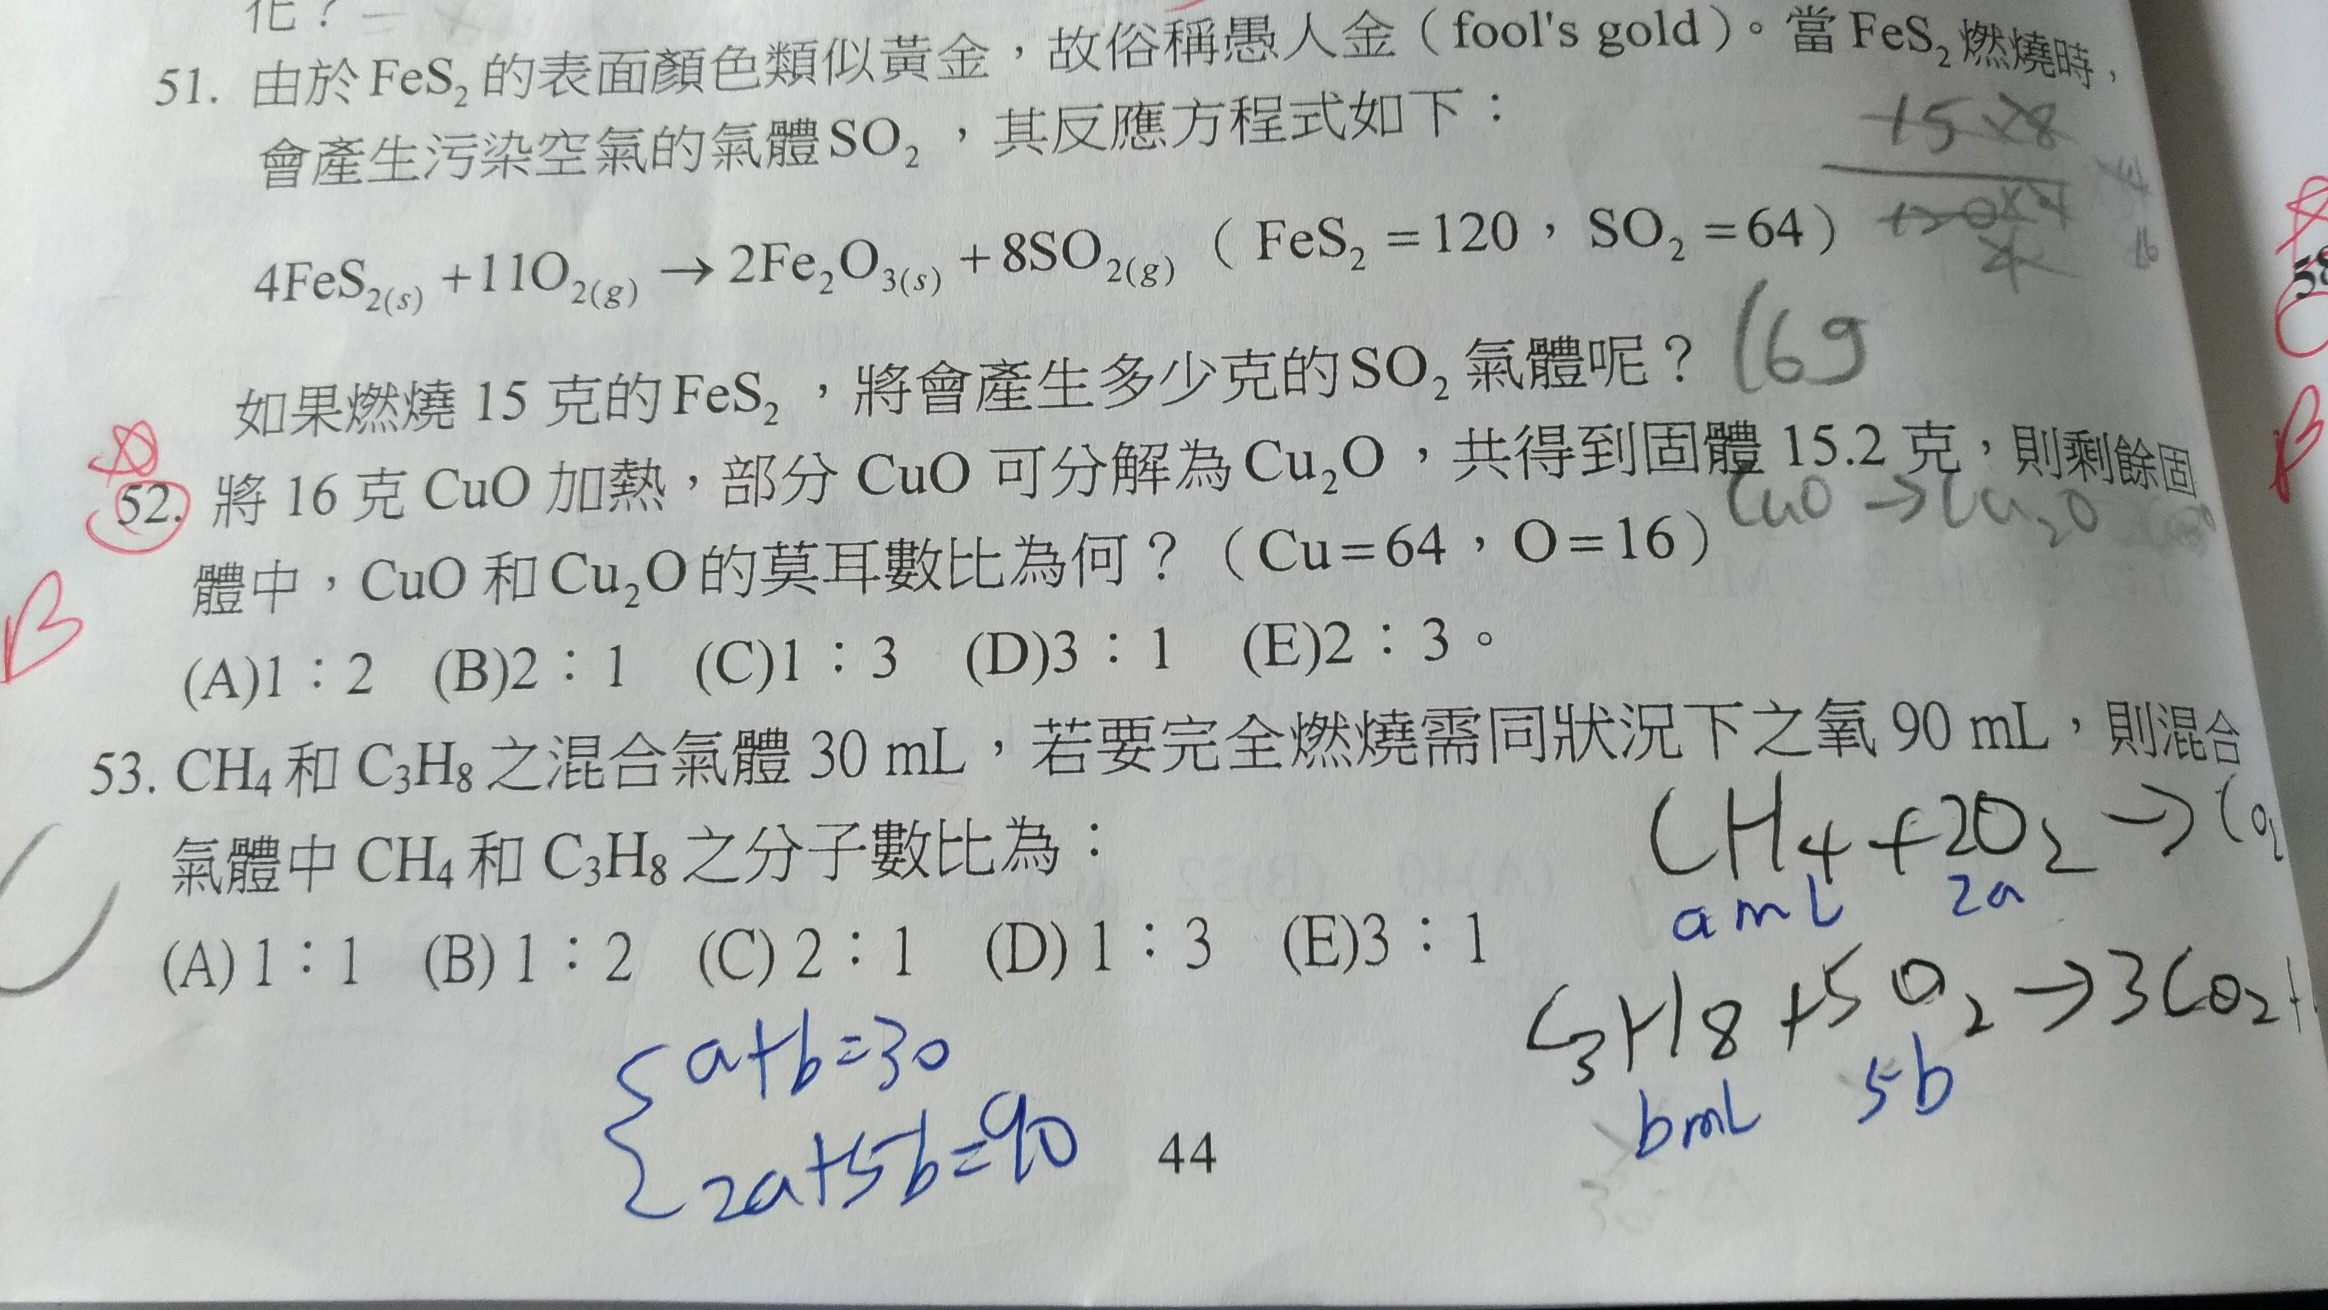 化？
51. 由於FeS₂的表面顏色類似黃金，故俗稱愚人金（fool's gold）。當FeS₂燃燒時，
會產生污染空氣的氣體SO₂，其反應方程式如下：
15×8
4FeS₂₍ₛ₎+11O₂₍g₎→2Fe₂O₃₍ₛ₎+8SO₂₍g₎（FeS₂=120，SO₂=64）
如果燃燒 15 克的FeS₂，將會產生多少克的SO₂氣體呢？ 16g
52. 將 16 克 CuO 加熱，部分 CuO 可分解為Cu₂O，共得到固體 15.2 克，則剩餘固
CuO → Cu₂O
體中，CuO 和Cu₂O的莫耳數比為何？（Cu=64，O=16）
B
(A)1：2 (B)2：1 (C)1：3 (D)3：1 (E)2：3。
53. CH₄ 和 C₃H₈ 之混合氣體 30 mL，若要完全燃燒需同狀況下之氧 90 mL，則混合
氣體中 CH₄ 和 C₃H₈ 之分子數比為：
CH₄+2O₂→CO₂
a mL 2a
(A) 1：1 (B) 1：2 (C) 2：1 (D) 1：3 (E)3：1
C₃H8+5O₂→3CO₂+
bmL 5b
a+b=30
2a+5b=90
44
58
B